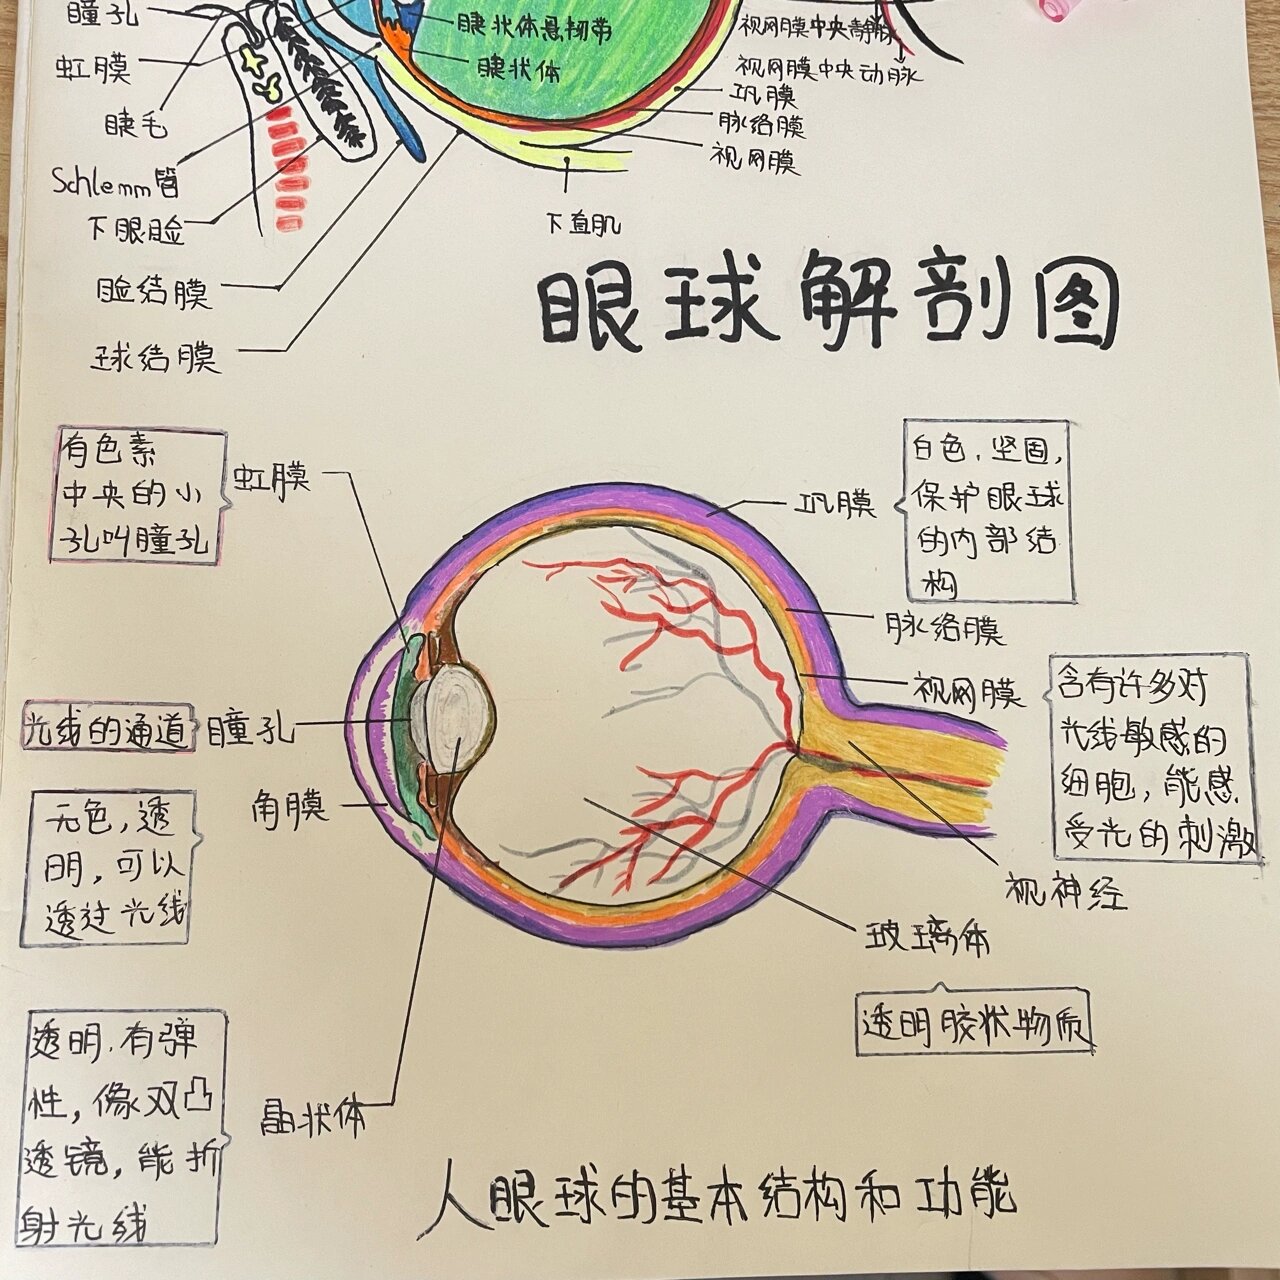 瞳孔
虹膜
睫毛
Schlemm管
下眼睑
睑结膜
球结膜
睫状体悬韧带
睫状体
视网膜中央静脉
视网膜中央动脉
巩膜
脉络膜
视网膜
下直肌
眼球解剖图
有色素
中央的小
孔叫瞳孔
虹膜
巩膜
白色，坚固，
保护眼球
的内部结
构
脉络膜
视网膜
含有许多对
光线敏感的
细胞，能感
受光的刺激
光线的通道
瞳孔
角膜
无色，透
明，可以
透过光线
视神经
玻璃体
透明胶状物质
透明，有弹
性，像双凸
透镜，能折
射光线
晶状体
人眼球的基本结构和功能